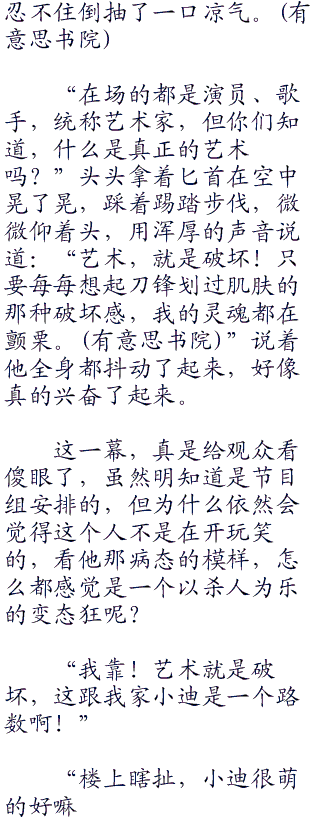 忍不住倒抽了一口凉气。(有
意思书院)
“在场的都是演员、歌
手，统称艺术家，但你们知
道，什么是真正的艺术
吗？”头头拿着匕首在空中
晃了晃，踩着踢踏步伐，微
微仰着头，用浑厚的声音说
道：“艺术，就是破坏！只
要每每想起刀锋划过肌肤的
那种破坏感，我的灵魂都在
颤栗。(有意思书院)”说着
他全身都抖动了起来，好像
真的兴奋了起来。
这一幕，真是给观众看
傻眼了，虽然明知道是节目
组安排的，但为什么依然会
觉得这个人不是在开玩笑
的，看他那病态的模样，怎
么都感觉是一个以杀人为乐
的变态狂呢？
“我靠！艺术就是破
坏，这跟我家小迪是一个路
数啊！”
“楼上瞎扯，小迪很萌
的好嘛